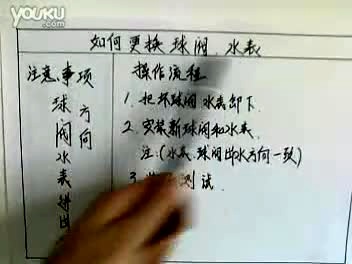 YOUKU
如何更换球阀、水表
注意事项
球阀水表进出
方向
操作流程
1. 把坏球阀、水表卸下
2. 安装新球阀和水表.
注:(水表、球阀出水方向一致)
3.
测试